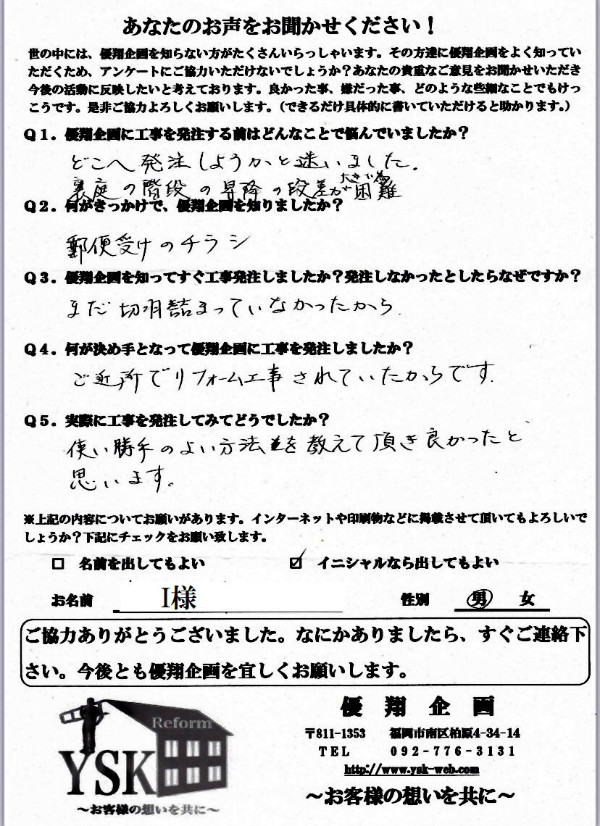 あなたのお声をお聞かせください！
世の中には、優翔企画を知らない方がたくさんいらっしゃいます。その方達に優翔企画をよく知ってい
ただくため、アンケートにご協力いただけないでしょうか？あなたの貴重なご意見をお聞かせいただき
今後の活動に反映したいと考えております。良かった事、嫌だった事、どのような些細なことでもけっ
こうです。是非ご協力よろしくお願いします。（できるだけ具体的に書いていただけると助かります。）
Q1．優翔企画に工事を発注する前はどんなことで悩んでいましたか？
どこへ発注しようかと迷いました.
裏庭の階段の昇降の段差が大きい為困難
Q2．何がきっかけで、優翔企画を知りましたか？
郵便受けのチラシ
Q3．優翔企画を知ってすぐ工事発注しましたか？発注しなかったとしたらなぜですか？
まだ切羽詰まっていなかったから
Q4．何が決め手となって優翔企画に工事を発注しましたか？
ご近所でリフォーム工事されていたからです.
Q5．実際に工事を発注してみてどうでしたか？
使い勝手のよい方法を教えて頂き良かったと
思います。
※上記の内容についてお願いがあります。インターネットや印刷物などに掲載させて頂いてもよろしいで
しょうか？下記にチェックをお願い致します。
□ 名前を出してもよい ☑ イニシャルなら出してもよい
お名前 I様 性別 男 女
ご協力ありがとうございました。なにかありましたら、すぐご連絡下
さい。今後とも優翔企画を宜しくお願いします。
Reform
YSK
～お客様の想いを共に～
優翔企画
〒811-1353 福岡市南区柏原4-34-14
TEL 092-776-3131
http://www.ysk-web.com
～お客様の想いを共に～